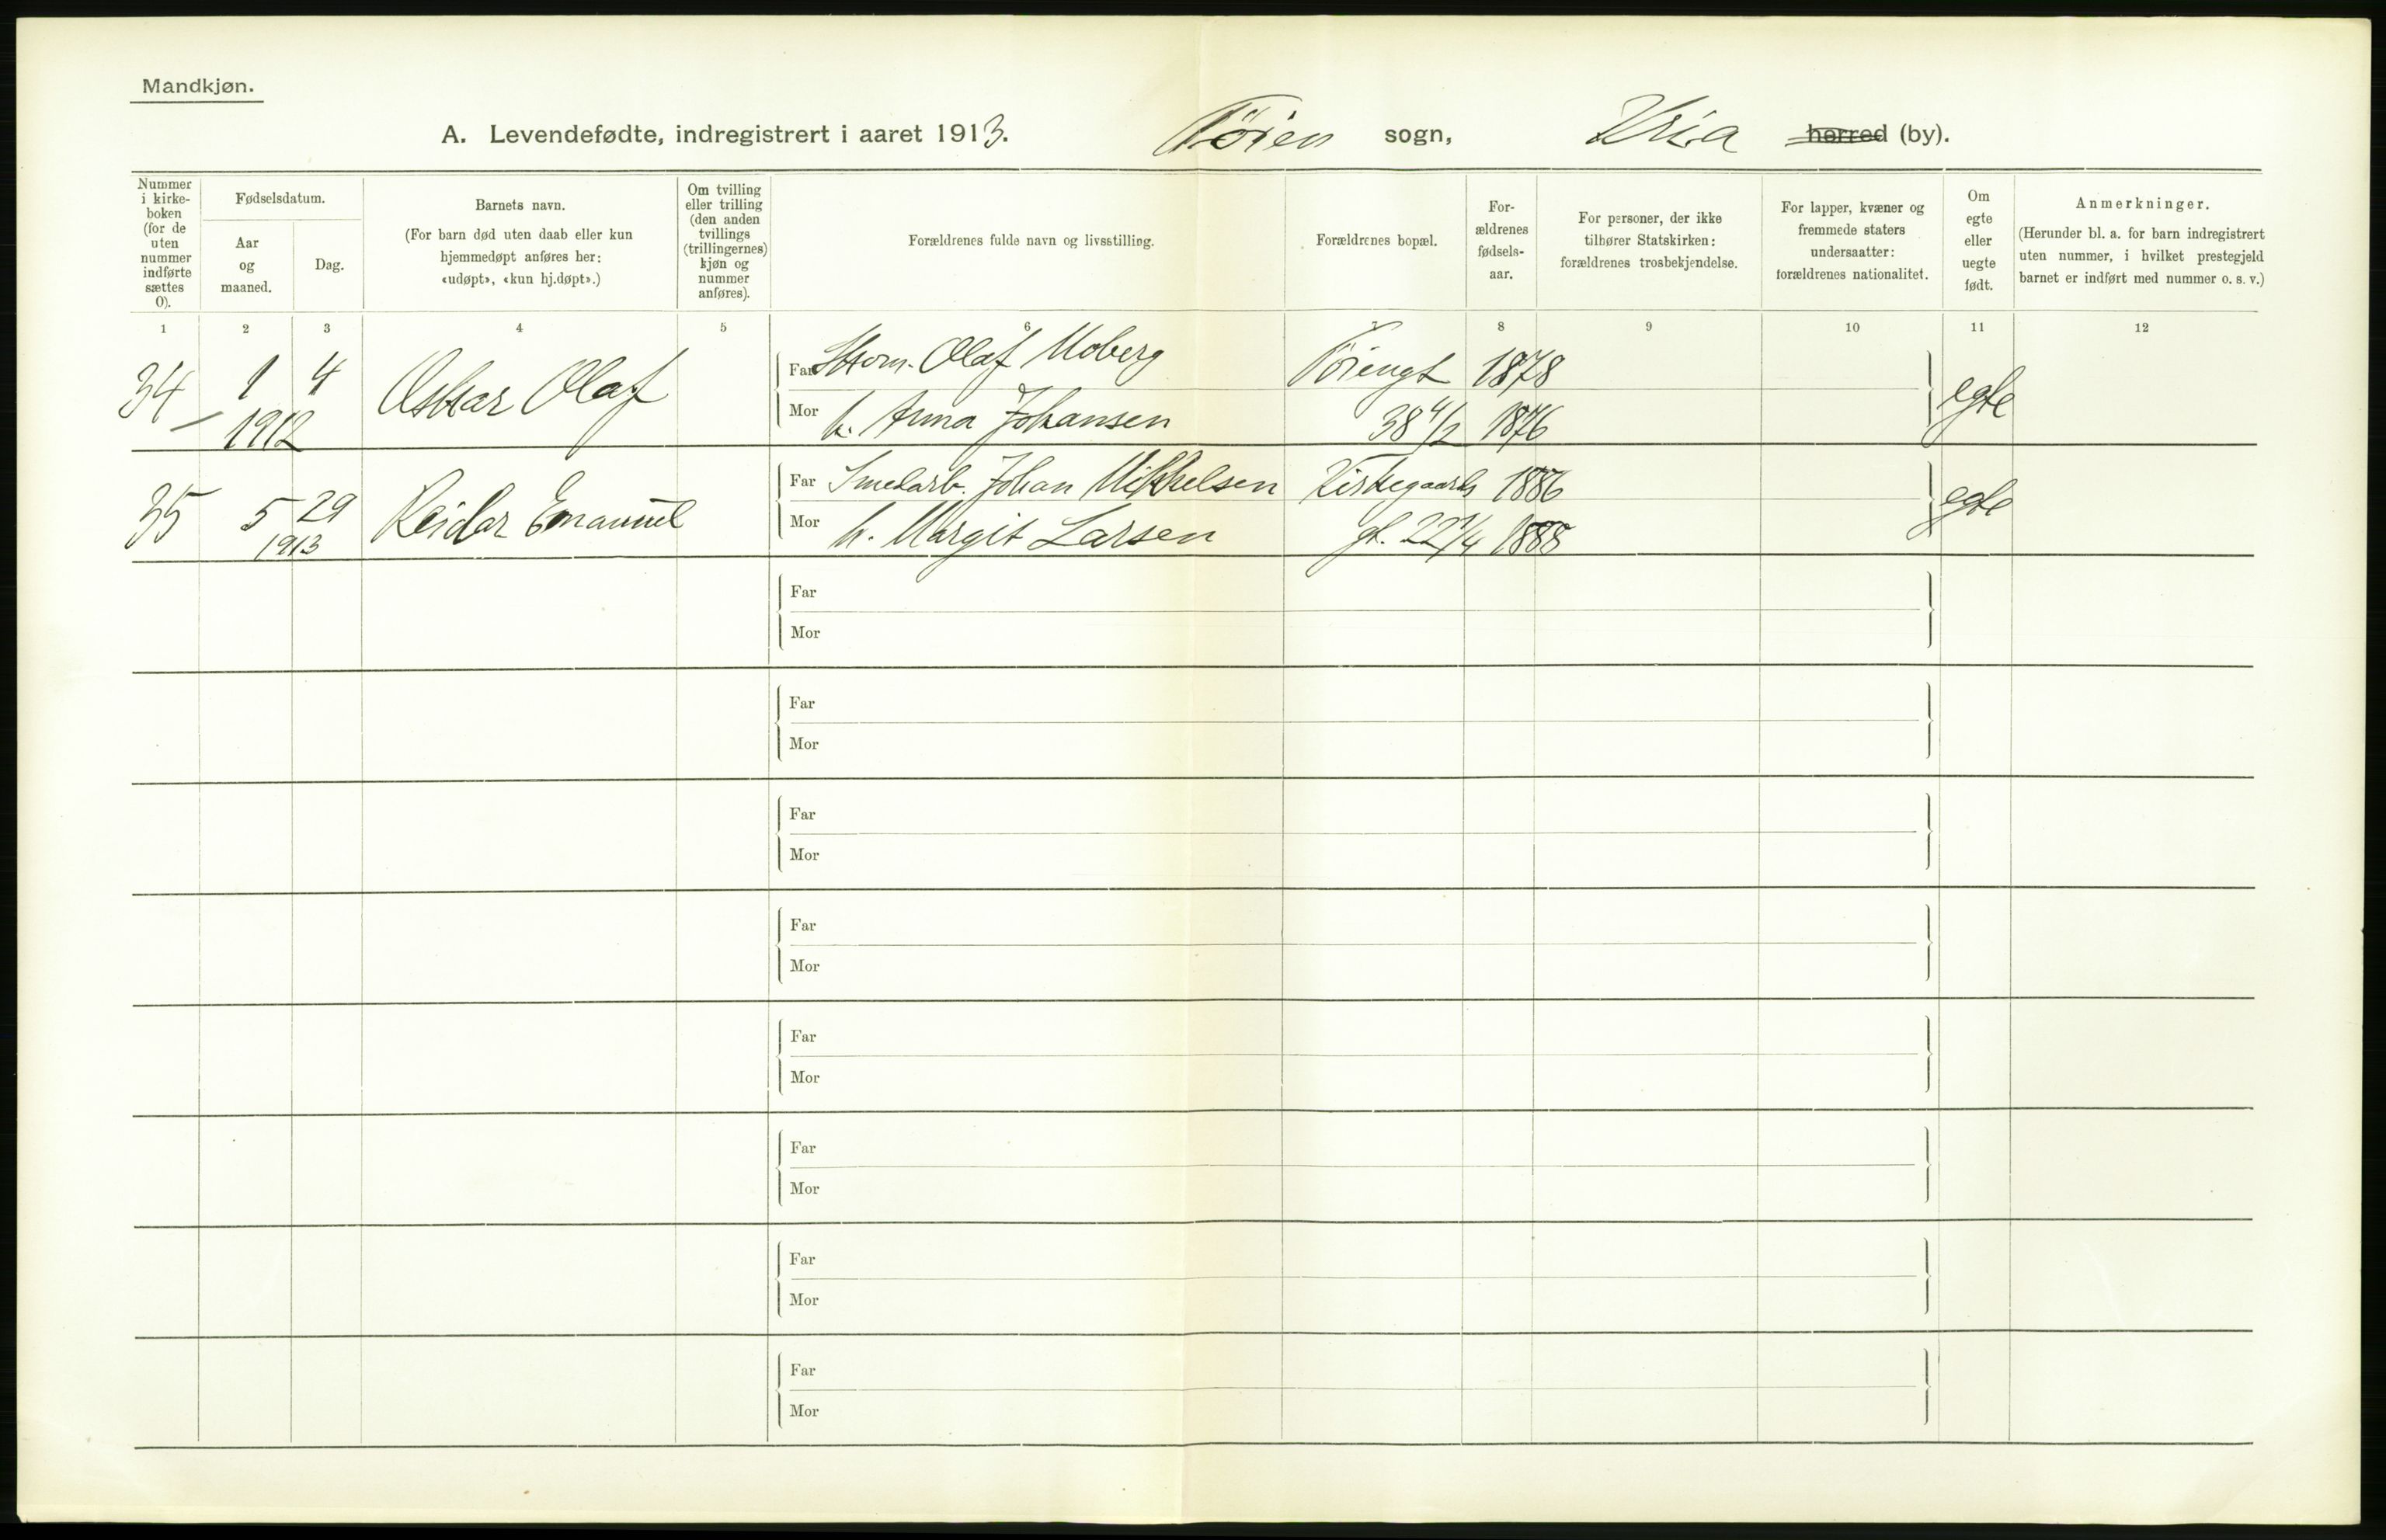 Mandkjøn.
A. Levendefødte, indregistrert i aaret 1913. Tøien sogn, Kria herred (by).
Nummer i kirke-boken (for de uten nummer indførte sættes 0).
Fødselsdatum.
Aar og maaned.
Dag.
Barnets navn.
(For barn død uten daab eller kun hjemmedøpt anføres her: «udøpt», «kun hj.døpt».)
Om tvilling eller trilling (den anden tvillings (trillingernes) kjøn og nummer anføres).
Forældrenes fulde navn og livsstilling.
Forældrenes bopæl.
For-ældrenes fødsels-aar.
For personer, der ikke tilhører Statskirken: forældrenes trosbekjendelse.
For lapper, kvæner og fremmede staters undersaatter: forældrenes nationalitet.
Om egte eller uegte født.
Anmerkninger.
(Herunder bl. a. for barn indregistrert uten nummer, i hvilket prestegjeld barnet er indført med nummer o. s. v.)
1 2 3 4 5 6 7 8 9 10 11 12
34 1 4 Oskar Olaf Far Olaf Moberg Töiengt 1878 egte
1912 Mor h. Anna Johansen 38 4/2 1876
35 5 29 Reidar Emanuel Far Smedarb. Johan Mikkelsen Kirkegaards 1886 egte
1913 Mor h. Margit Larsen gt. 22 1/4 1888
Far
Mor
Far
Mor
Far
Mor
Far
Mor
Far
Mor
Far
Mor
Far
Mor
Far
Mor